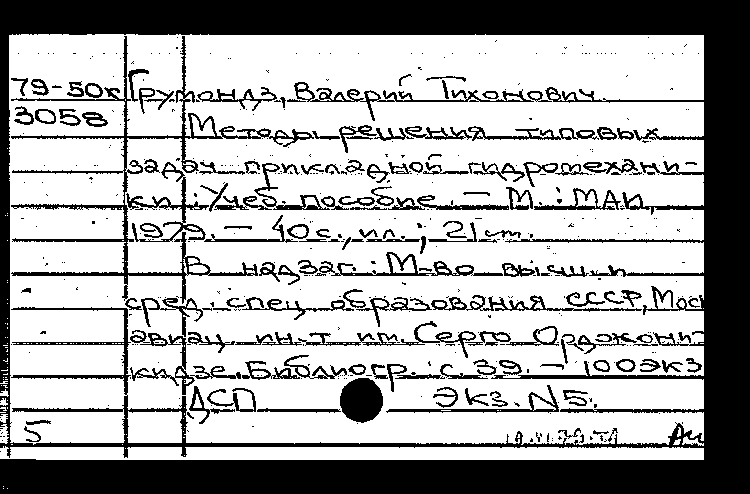 79-50к Грумондз, Валерий Тихонович
3058 Методы решения типовых
задач прикладной гидромехани-
ки : Учеб. пособие. — М. : МАИ,
1979. — 40 с., ил. ; 21 см.
В надзаг. : М-во высш. и
сред. спец образования СССР, Моск
авиац. ин-т им. Серго Орджони-
кидзе. Библиогр. : с. 39. — 100экз
ДСП Экз. N5.
5